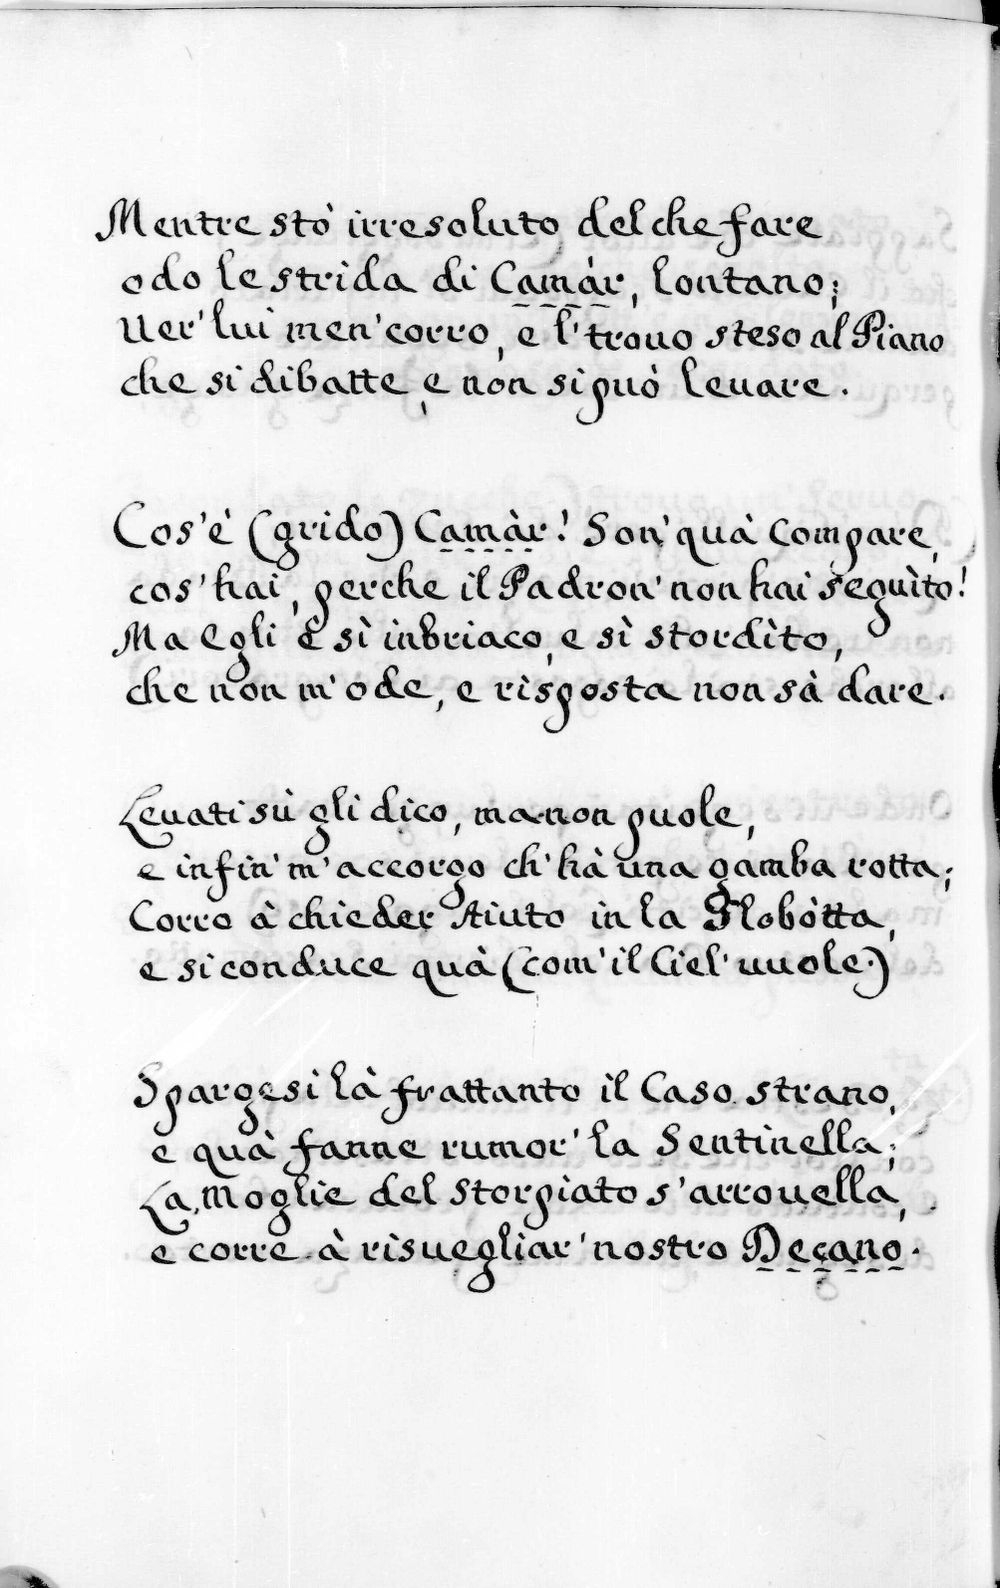 Mentre stò irresoluto del che fare
odo le strida di Camàr, lontano;
Uer' lui men' corro, e l' trouo steso al Piano
che si dibatte, e non si può leuare.
Cos' è (grido) Camàr! Son' quà Compare,
cos' hai, perche il Padron' non hai seguìto!
Ma Egli è sì inbriaco, e sì stordìto,
che non m' ode, e rìsposta non sà dare.
Leuati sù gli dico, ma non puole,
e infin' m' accorgo ch' hà una gamba rotta;
Corro à chieder Aiuto in la Flobòtta,
e si conduce quà (com' il Ciel' uuole.)
Spargesi là frattanto il Caso strano,
e quà fanne rumor' la Sentinella;
La Moglie del Storpiato s' arrouella,
e corre à risuegliar' nostro Decano.